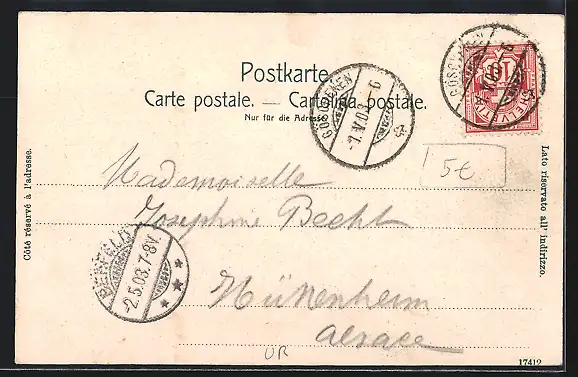 Postkarte.
Carte postale. — Cartolina postale.
Nur für die Adresse
GÖSCHENEN
-1.V.03.-6
10
HELVETIA
5€
Côté réservé à l'adresse.
Lato riservato all' indirizzo.
Mademoiselle
Josephine Becht
BENFELD
-2.5.03.7-8V.
* * *
Hüttenheim
Alsace
UR
17412